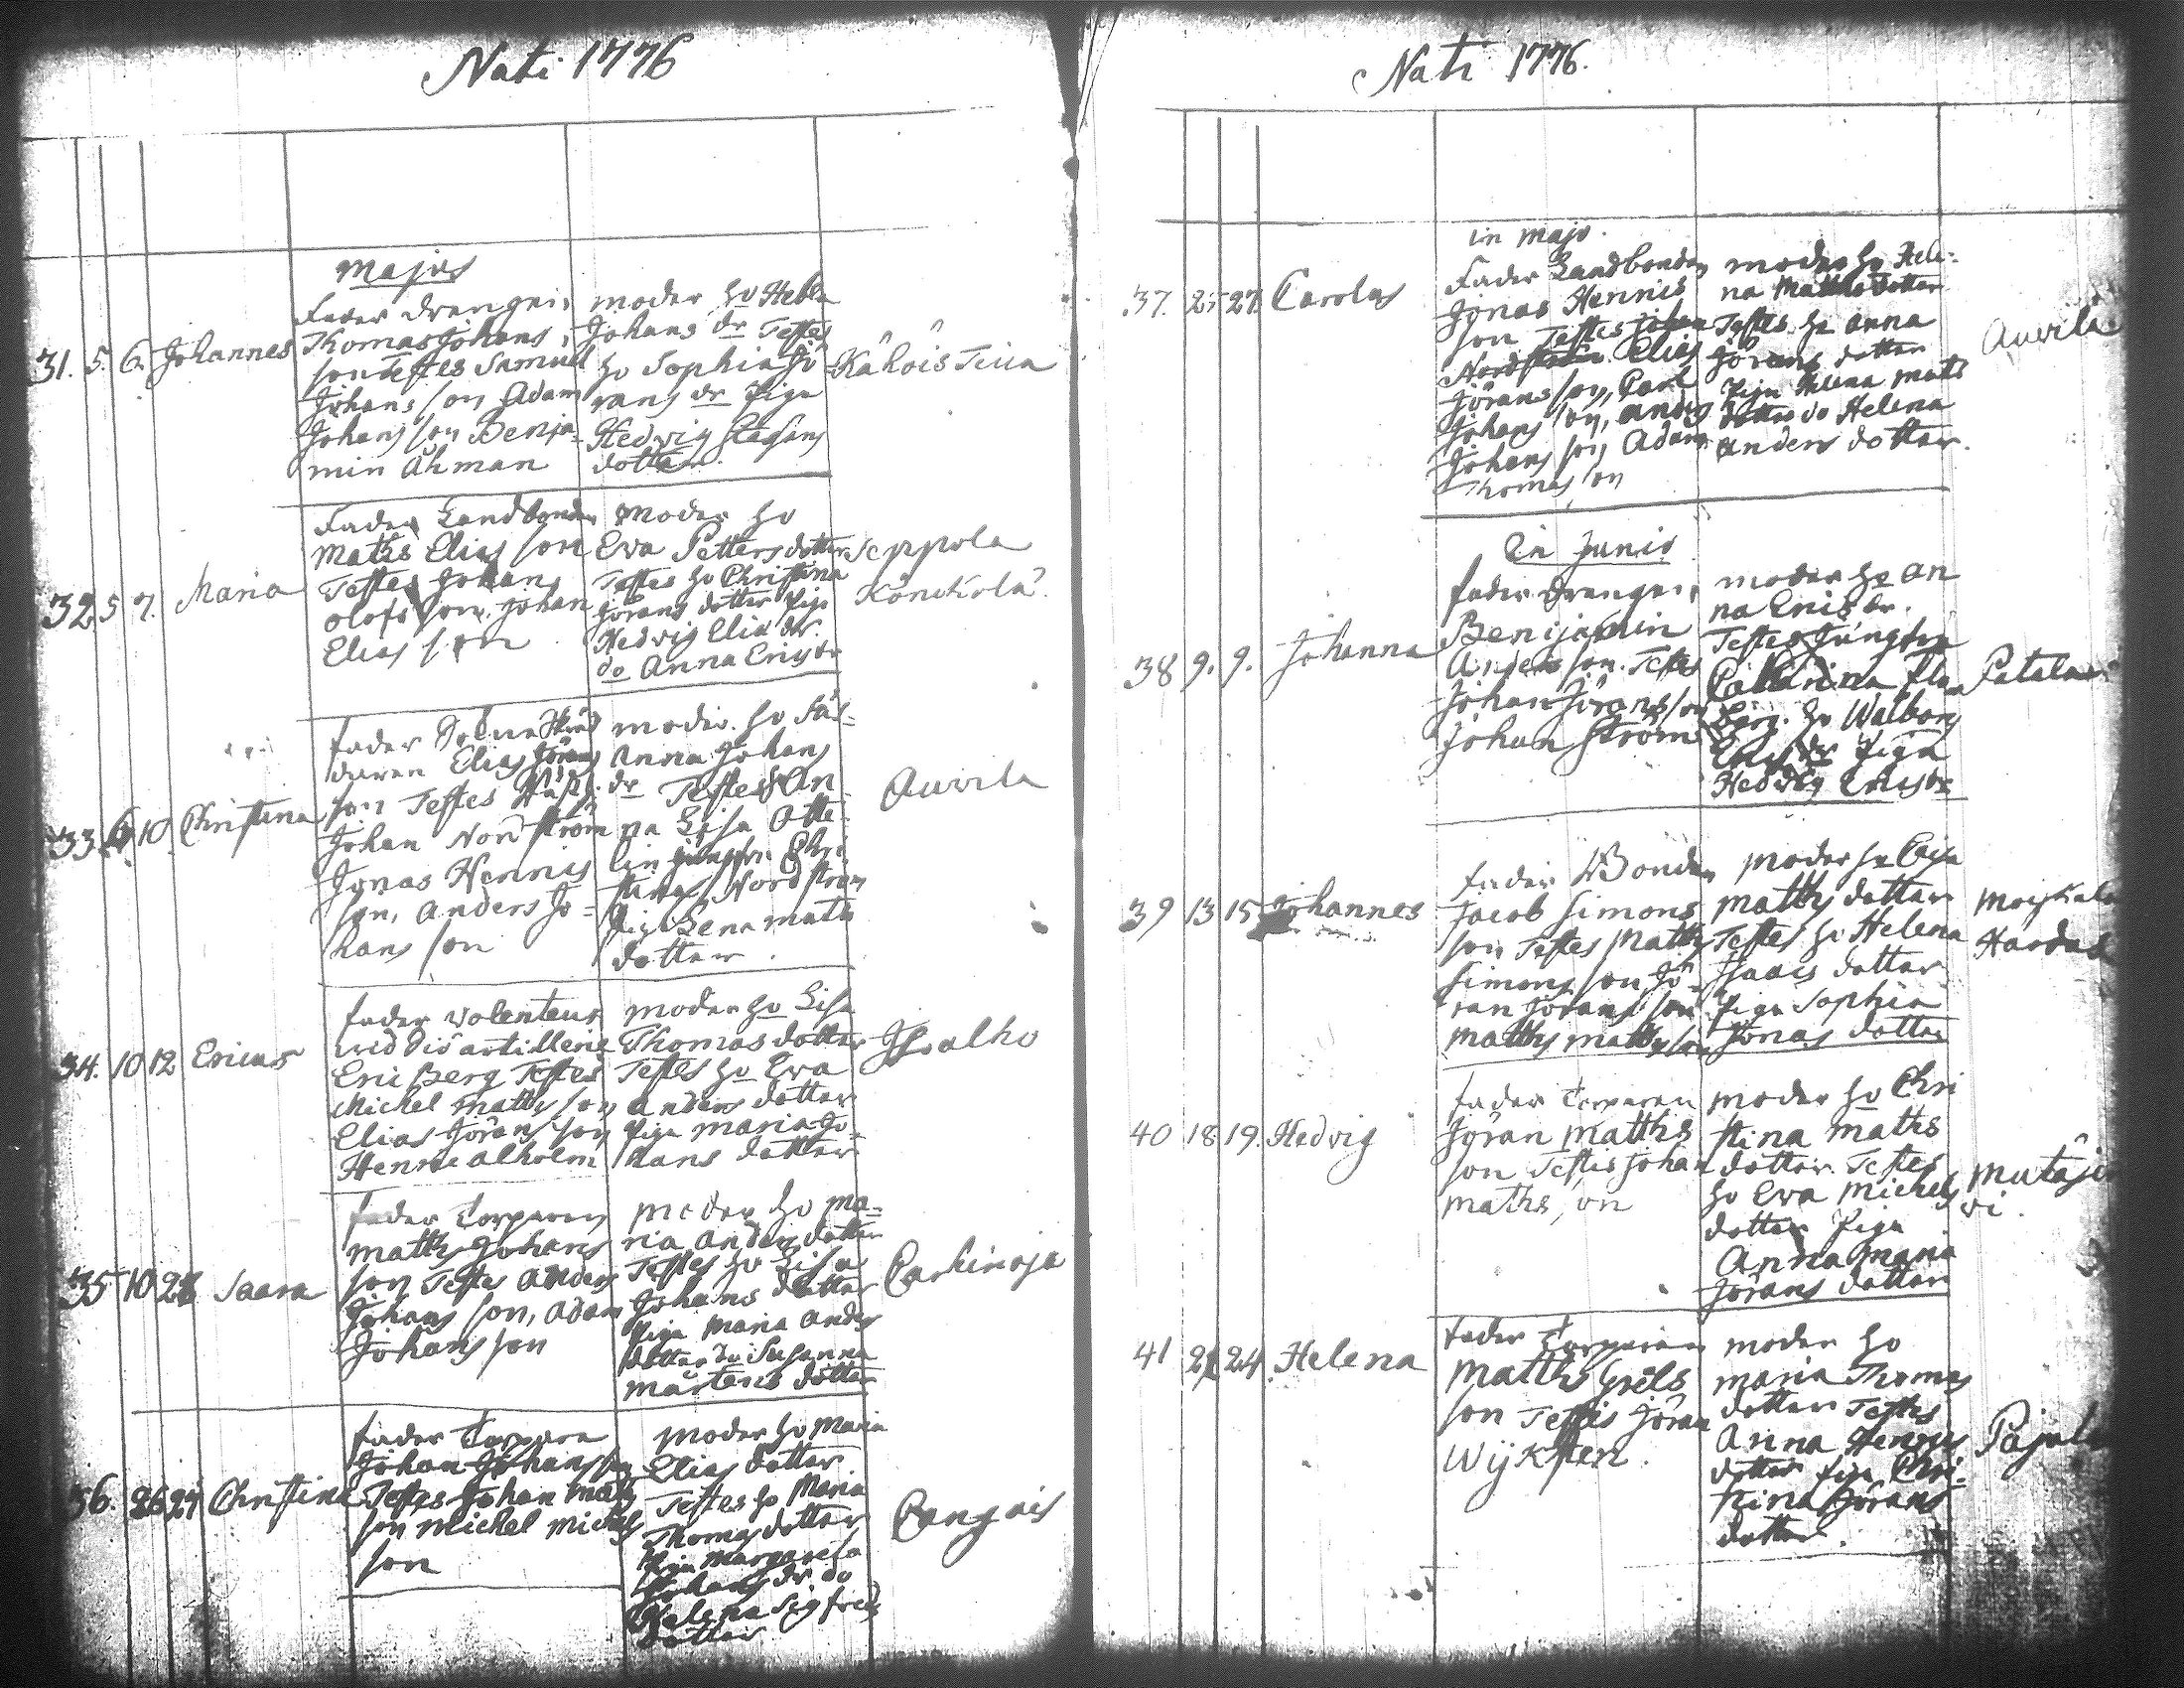 Nati 1776
Majus
31. 5. 6. Johannes
Fader drengen
Thomas Johans
son Testes Samuel
Johans son Adam
Johans son Benja-
min Åhman
moder ho Helena
Johans dr Testes
ho Sophia Jö
rans dr Piga
Hedvig Stafans
dotter.
Kåhois Teua
32. 5 7. Maria
Fader Landbonden
Matts Elias son
Testes Johans
Olofs son. Johan
Elias son
Moder ho
Eva Petters dotter
Testes ho Christina
Jörans dotter Piga
Hedvig Elia dr.
do Anna Erics dr
Seppola
Könckola?
33. 6 10 Christina
fader
Elias Jörans
son Testes
Johan Nordström
Jonas Hennis
son, Anders Jo-
hans son
moder. ho
Anna Johans
dr Testes An
na Lisa Otte
lin jungfru Chri
stina Nordström
Piga Lena Matts
dotter.
Auvila
34. 10 12 Ericus
fader volenteur
vid artillerie
Eric Berg Testes
Michel Matts son
Elias Jörans son
Henric alholm
moder ho Lisa
Thomas dotter
Testes ho Eva
Anders dotter
Piga Maria Jo-
hans dotter
Isoalho
35 10 28 Saara
fader Torparen
Matts Johans
son Testes Anders
Johans son, Adam
Johans son
moder ho Ma-
ria Anders dotter
Testes ho Lisa
Johans dotter
Piga Maria Anders
dotter do Susanna
Mårtens dotter
Carhinoja
36. 26 27 Christina
fader Torpare
Johan Johansson
Testes Johan Matts
son Michel Michels
son
moder ho Maria
Elias dotter
Testes ho Maria
Thomas dotter
Piga Margareta
Johans dr do
Helena Sigfreds
dotter
Cangais
Nati 1776.
in majo.
37. 25 27. Carolus
Fader Landbonden
Jonas Hennis
son Testes Johan
Nordström. Elias
Jörans son, Carl
Johans son, Anders
Johans son Adam
Thomas son
moder ho Hele-
na Matts dotter
Testes ho Anna
Jörans dotter
Piga Helena Matts
dotter do Helena
Anders dotter.
Auvila
In Junio
38 9. 9. Johanna
fader drengen
Benijamin
Anders son. Testes
Johan Jörans son
Johan Ström
moder ho An
na Erics dr.
Testes Jungfru
Catarina
berg. ho Walborg
Erics dr Piga
Hedvig Erics dr
Patala
39 13 15 Johannes
fader Bonden
Jacob Simons
son Testes Matts
Simons son Jö-
ran Jörans son
Matts Matts son
Moder ho Caisa
Matts dotter
Testes ho Helena
Isaacs dotter
Piga Sophia
Jonas dotter
40 18 19. Hedvig
fader Torparen
Jöran Matths
son Testis Johan
Maths son
moder ho Chri
stina Maths
dotter Testes
ho Eva Michels
dotter Piga
Anna Maria
Jörans dotter
Mutajer
vi.
41 21 24. Helena
fader Torparen
Matts Grels
son Testis Jöran
Wijksten.
moder ho
Maria Thomas
dotter Testes
Anna Henrics
dotter Piga Chri-
stina Jörans
dotter.